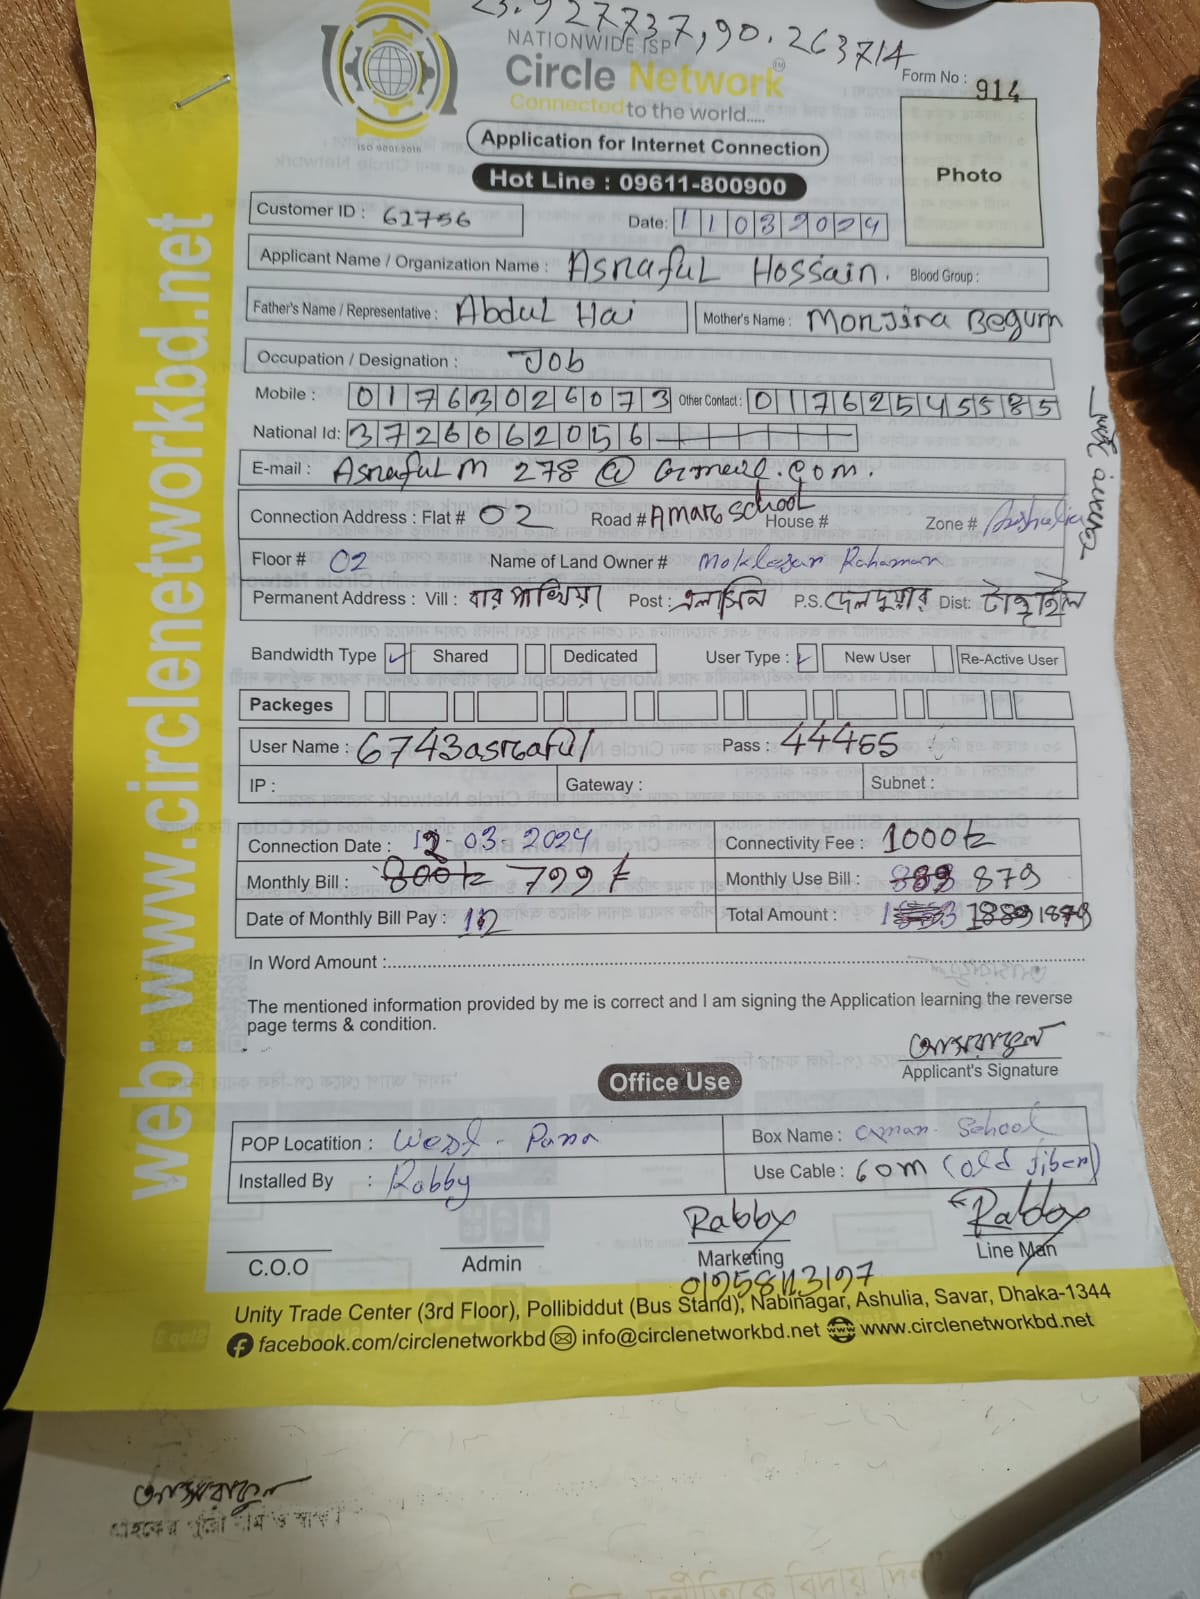 23.927737, 90.263714
NATIONWIDE ISP
Circle Network
Connected to the world.....
ISO 9001:2015
Form No : 914
Application for Internet Connection
Hot Line : 09611-800900
Photo
web: www.circlenetworkbd.net
Customer ID : 61756 Date: 11032024
Applicant Name / Organization Name : Asraful Hossain. Blood Group :
Father's Name / Representative : Abdul Hai Mother's Name : Monjira Begum
Occupation / Designation : Job
Mobile : 01763026073 Other Contact : 01762545585
National Id: 3726062056
E-mail : Asraful m 278 @ Gmail.com.
Connection Address : Flat # 02 Road # Aman school House # Zone # Ashulia
Floor # 02 Name of Land Owner # Rahaman
Permanent Address : Vill : বার পাখিয়া Post : এলাসিন P.S. দেলদুয়ার Dist: টাঙ্গাইল
Bandwidth Type Shared Dedicated User Type : New User Re-Active User
Packeges
User Name : 6743asraful Pass : 44455
IP : Gateway : Subnet :
Connection Date : 12-03-2024 Connectivity Fee : 1000tk
Monthly Bill : 800tk 799 Monthly Use Bill : 879
Date of Monthly Bill Pay : 12 Total Amount : 1889 1879
In Word Amount :
The mentioned information provided by me is correct and I am signing the Application learning the reverse
page terms & condition.
আসরাফুল
Applicant's Signature
Office Use
POP Locatition : West - Para Box Name : aman School
Installed By : Robby Use Cable : 60m (old fiber)
Rabby Rabby
C.O.O Admin Marketing Line Man
01958113197
Unity Trade Center (3rd Floor), Pollibiddut (Bus Stand), Nabinagar, Ashulia, Savar, Dhaka-1344
facebook.com/circlenetworkbd info@circlenetworkbd.net www.circlenetworkbd.net
আসরাফুল
গ্রাহকের পুরো নাম ও